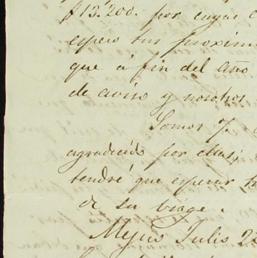 $13.200. por cuyas
espero tus proxim
que á fin del año
de aviso y nosotros
Somos 7.
agradecido por
tendré que esperar
de su viage.
Mejico Julio 22